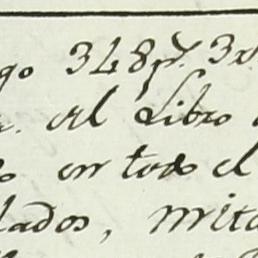 go 348 p.s 3r.
el Libro
en todo el
lados, mita